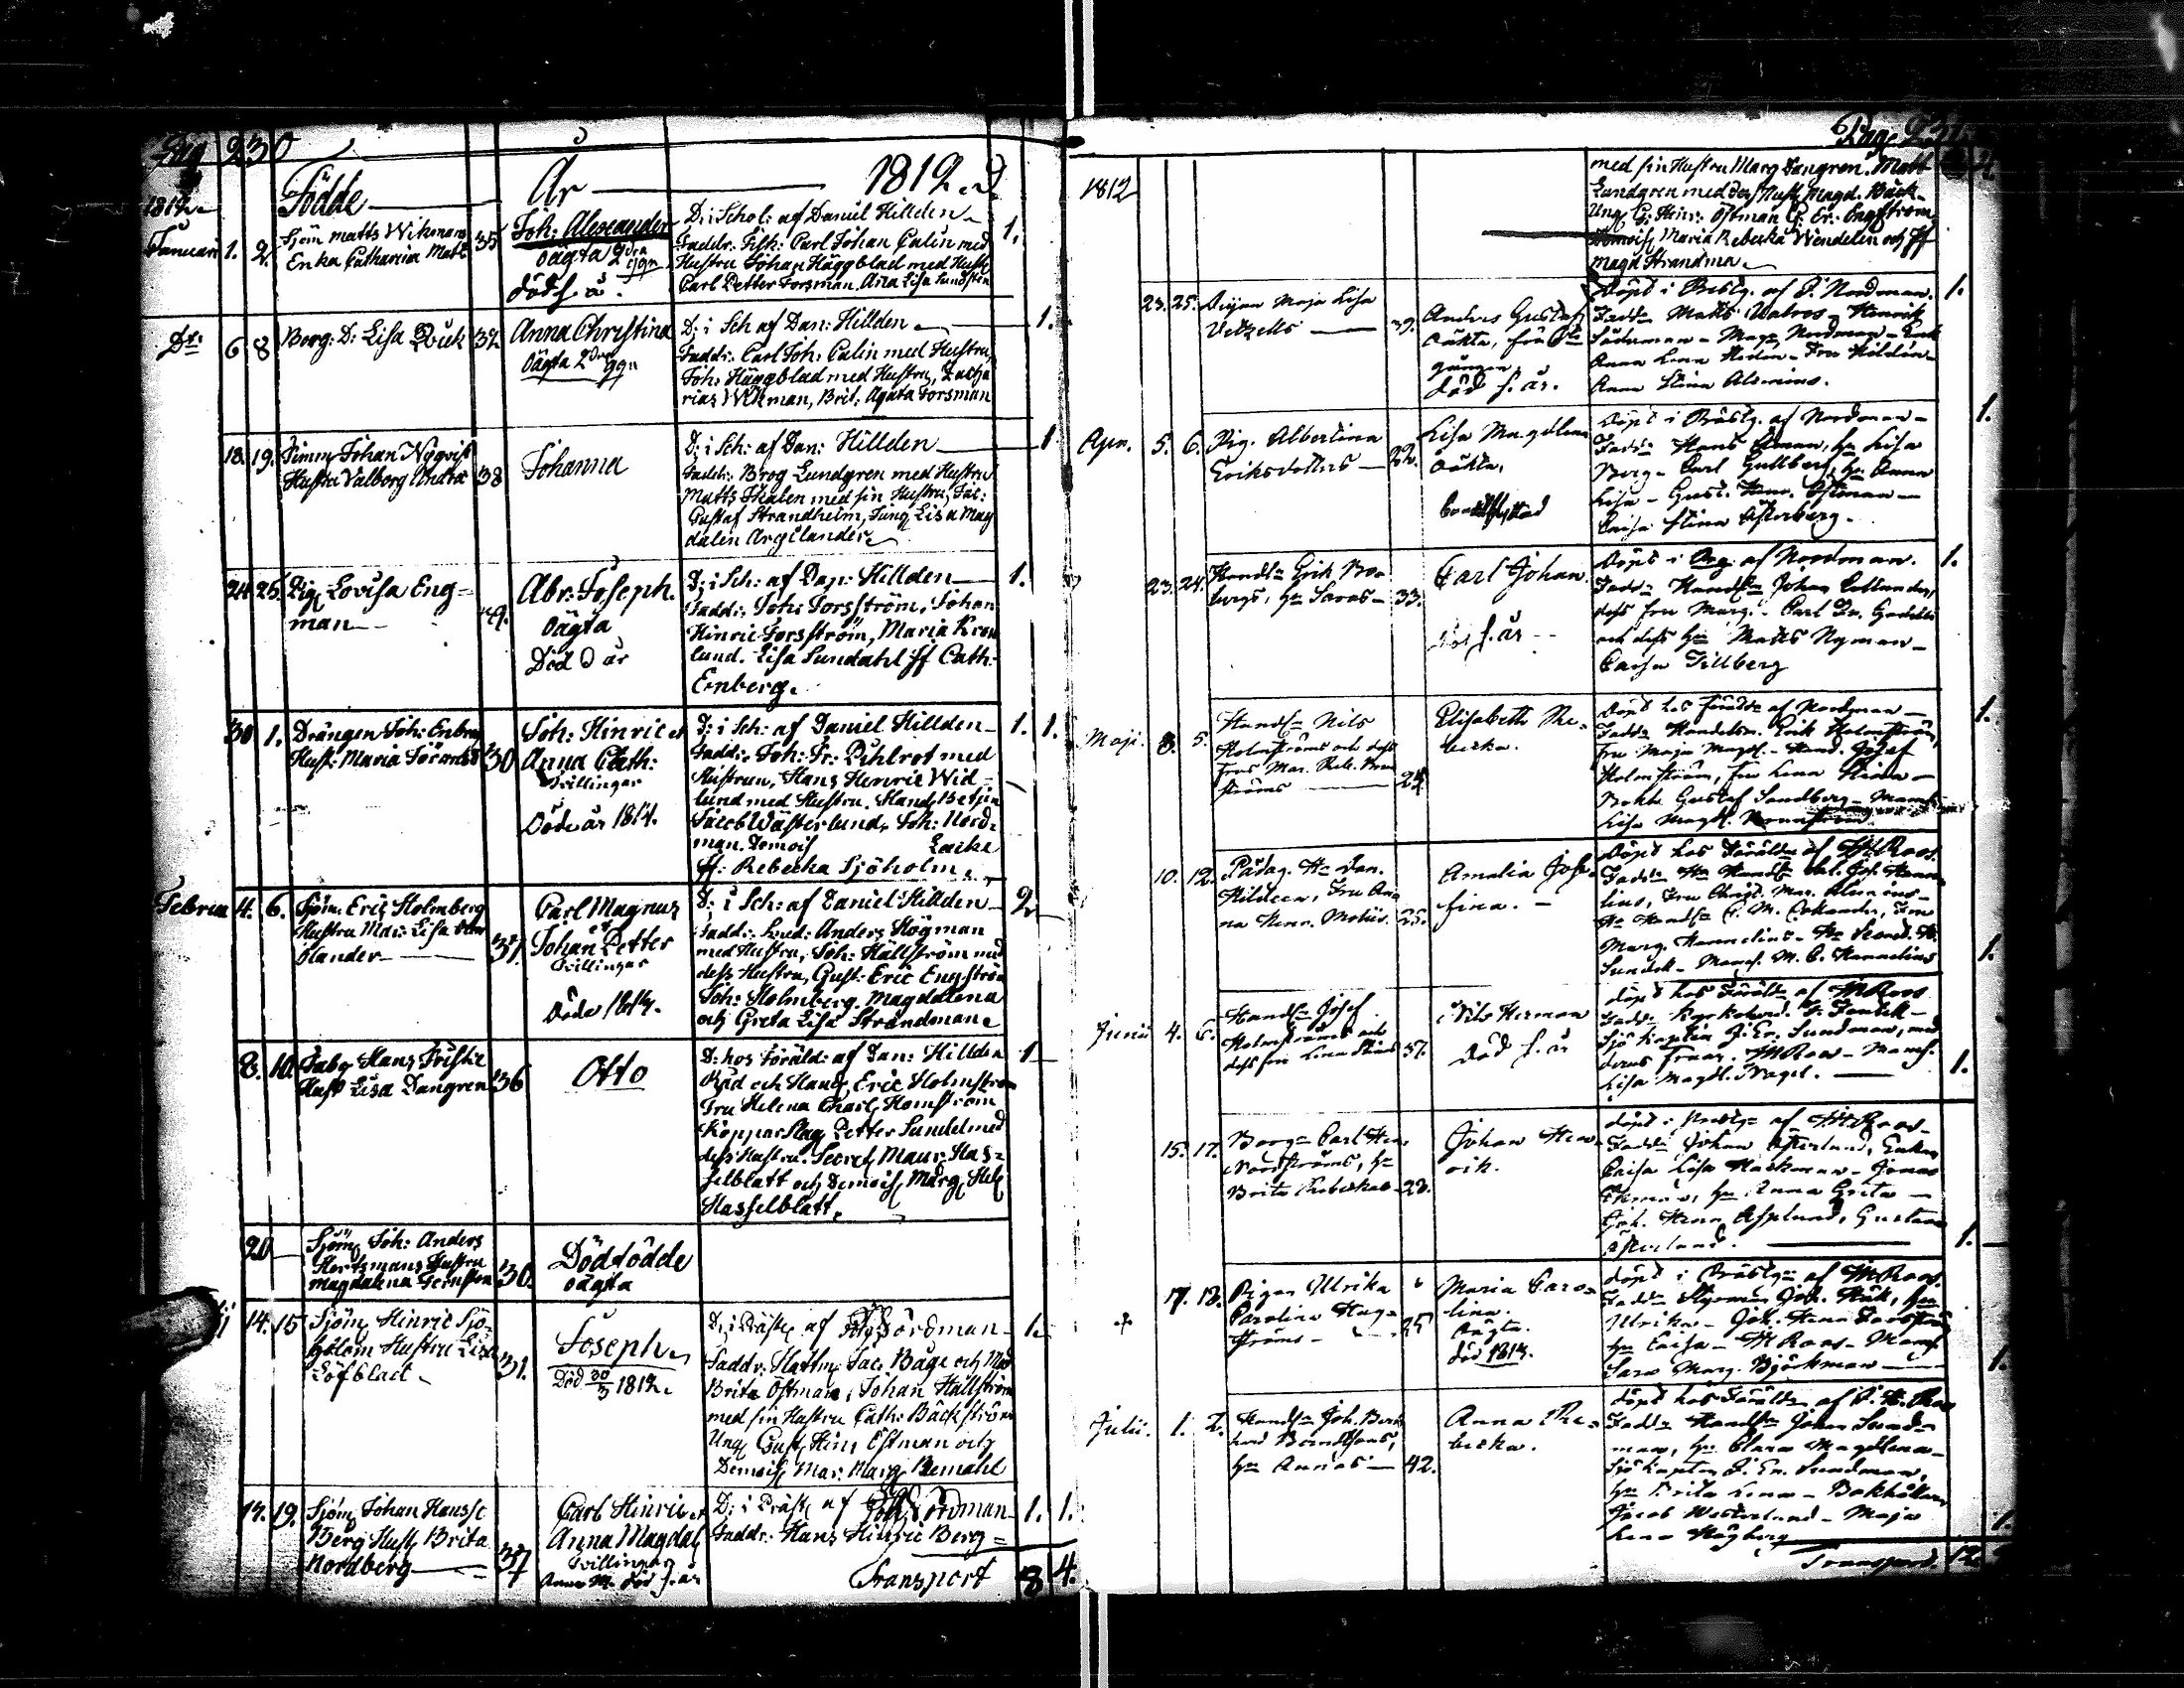 Pag 230
Födde År 1812
1812
Januari 1. 2. Sjöm Matts Wikmans
Enka Catharina Matts 35
Joh: Alexander
oägta 2dra ggn
död s. å.
D: i Schol: af Daniel Hillden
Faddr: Fisk: Carl Johan Calin med
Hustru Johan Häggblad med Hust
Carl Petter Forsman, Ana Lisa Sundsten
1.
Do 6 8 Borg: D: Lisa Buck 32
Anna Christina
oägta 2dra ggn
D: i Sch af Dan: Hillden
Faddr: Carl Joh: Calin med Hustru
Joh: Häggblad med Hustru, Zacha
rias Wikman, Brit: Agata Forsman
1.
18. 19. Timm Johan Nyqvist
Hustru Valborg Andrae 38
Johanna
D: i Sch: af Dan: Hillden
Faddr: Brog Lundgren med Hustru
Matts Thalen med sin Hustru, Jac:
Gustaf Strandhelm, Jung Lisa Mag
dalen Argillander
1
24 25. Pig Lovisa Eng=
man
Abr: Joseph.
oägta
Död d år
D: i Sch: af Dan: Hillden
Faddr: Joh: Forsström, Johan
Hinric Forsström, Maria Kron
lund. Lisa Sundahl Jf Cath:
Enberg.
1.
30 1. Drängen Joh: Enberg
Hust: Maria 30
Joh: Hinric et
Anna Cath:
Tvillingar
Döde år 1814.
D: i Sch: af Daniel Hillden
Faddr: Joh: Fr: Pihlrot med
Hustrun, Hans Henric Wid=
lund med Hustru. Hand Betjen
Jacob Wästerlund, Joh: Nord=
man. Demois Laike
Jf: Rebecka Sjöholm.
1. 1.
Februa 4. 6. Sjöm. Eric Holmberg
Hustru Mar: Lisa
blander 37.
Carl Magnus
et
Johan Petter
Tvillingar
Döda 1814.
D: i Sch: af Daniel Hillden
Fadd: Lud: Anders Högman
med Hustru, Joh: Hällström med
dess Hustru, Gust: Eric Engström
Joh: Holmberg. Magdalena
och Greta Lisa Strandman
2
8. 10. Fabr Hans Friske
Hust Lisa Dangren 36
Otto
D: hos Föräld: af Dan: Hillden
Råd och Hand Eric Holmström
Fru Helena Charl: Homström
KopparSlag Petter Sundel med
dess Hustru. Secret Maur: Has=
selblatt och Demois Marg Hel:
Hasselblatt.
1
20 Sjöm Joh: Anders
Hertsmans Hustru
Magdalena 30.
Dödfödde
oägta
14. 15 Sjöm Hinric Sjö=
holom Hustru Lisa
Löfblad 31.
Joseph
Död 30/3 1812
D: i Präst: af Nordman
Faddr: Jac: Båge och Mad
Brita Östman, Johan Hällström
med sin Hustru Cath: Bäckström
Ung Gust Hinr Östman och
Demois Mar: Marg Bemahl
1.
17. 19. Sjöm Johan Hansse
Berg Hust Brita
Nordberg 37
Carl Hinric et
Anna Magdal
Tvillingar
Anna M. död s. år
D: i Präst af Nordman
Faddr: Hans Hinric Berg=
1. 1.
Transport 8 4.
Pag 231
1812
med sin Hustru Marg Dangren. Matt
Lundgren med dess Hust Magd. Bäck
Ung G: Hinr: Östman G: Er: Engström
Demois Maria Rebecka Wendelin och Jf
Magd Strandma
23. 25. Pigan Maja Lisa
39.
Anders Gustaf
oäkta, från
gången
död s. år.
Döpt i Prstg. af P. Nordman.
Faddr Matts Walros - Henrik
Söderman - Magr Nordman - Enk
Anna Lena Hedén - Fru Hildén
Anna Stina Alcenius.
1.
Apr. 5. 6. Pig. Albertina
Eriksdotters 22.
Lisa Magdlena
oäkta,
Döpt i Prästg. af Nordman
Fadd Hans Öman, hu Lisa
Berg - Carl Gullberg, hu Anna
Lisa - Gust. Henr. Östman
Caisa Stina Österberg.
1.
23. 24. Handl Erik Bo=
bergs, hu Saras 33.
Carl Johan.
död s. år
Döpt i af Nordman.
Fadd Handl Johan Collander,
dess fru Marg. - Carl Fr.
och dess hu Matts Nyman
Caisa Tillberg
1.
Maji 3. 5. Handl Nils
Holmströms och dess
Frus Mar. Reb. Bran
ströms 24
Elisabeth Re=
becka.
Döpt hos Föräldr af Nordman
Fadd Handelsm. Erik Holmström,
Fru Maja Magdl. - Hand. Josef
Holmström, Fru Lena Stina
Bokh Gustaf Sandberg - Mamls
Lisa Magdl.
1.
10. 12. Pädag. Hr Dan.
Hilldéen, Fru An=
na Henr. 25.
Amalia Jose=
fina.
Döpt hos Föräldr af M Roos.
Marg. Hammelius - Hr Secret. H.
Sundell - Mams. M. C. Hammelius
1.
Junii 4. 6. Handl Josef
Holmströms och
dess fru Lena Stinas 37.
Nils Herman
död s. år
döpt hos Föräldr af M Roos
Fadd Kyrkoherd. F: Fontell
Sjö Kapten J: Er. Sundman, med
deras Fruar. M Roos - Mams.
Lisa Magdl. Nagel.
1.
15. 17. Borg Carl Hen.
Nordströms, hu
Brita Rebeckas 28.
Johan Hen=
rik.
döpt i Prestg af M Roos
Fadd Johan Österlund, Enkan
Caisa Lisa Hackman - Jonas
Ekman, hu Anna Greta
Joh. Henr. Asplund, Gustava
Österlund.
1.
17. 18. Pigan Ullrika
Carolina Hag=
ströms 25
Maria Caro=
lina.
Oägta.
död 1813.
döpt i Prästg af M Roos.
Fadd Styrman Joh. Råk, hu
Ulrika - Joh. Henr Forsström
hu Caisa - M Roos - Mams
Sara Marg. Björkman
1.
Julii. 1. 2. Handl Joh. Bern
hard Berndtsons,
hu Annas 42.
Anna Re=
becka.
döpt hos Föräldr af
Fadd Handl Johan Sund=
man, hu Clara Magdlena
Sjö Kapten J. Er. Sundman,
hu Brita Lena - Bokhållare
Jacob Westerlund - Maja
Lena Högberg
1.
Transport 12